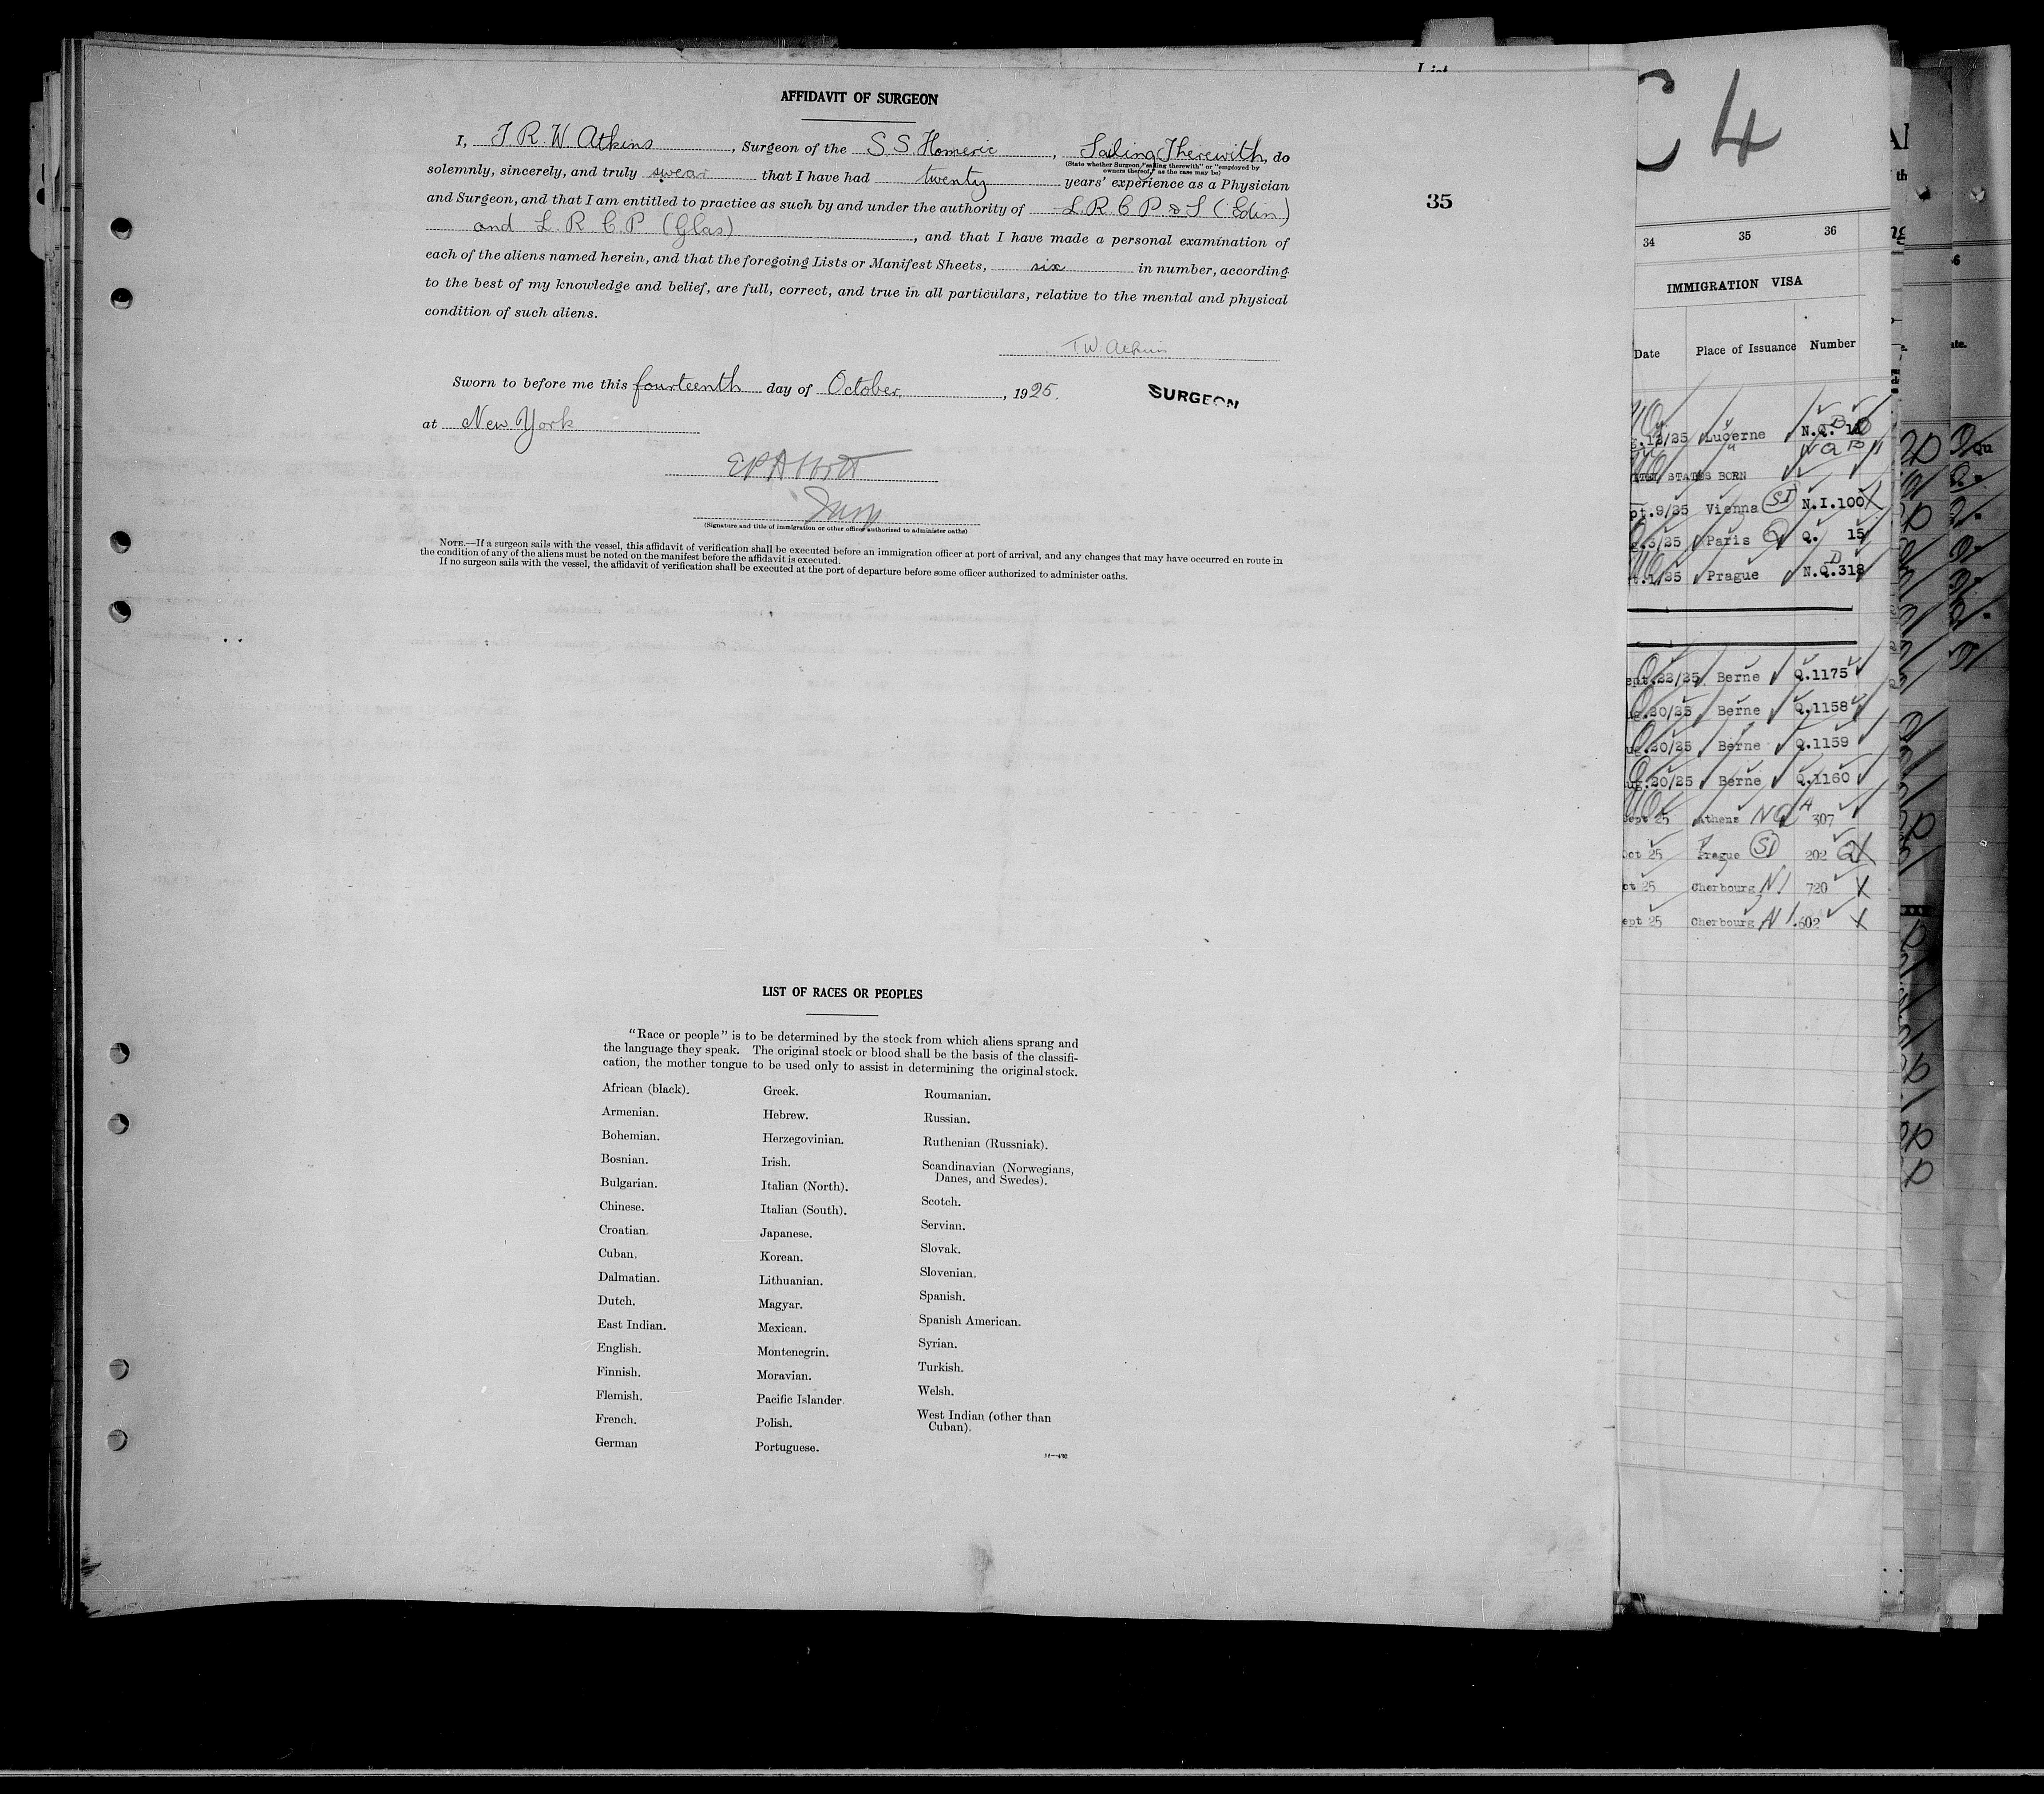 AFFIDAVIT OF SURGEON
I, T. R. W. Atkins, Surgeon of the S.S. Homeric, Sailing Therewith, do
(State whether Surgeon "sailing therewith" or "employed by
owners thereof," as the case may be)
solemnly, sincerely, and truly swear that I have had twenty years' experience as a Physician
and Surgeon, and that I am entitled to practice as such by and under the authority of L. R. C. P. & S (Edin)
and L. R. C. P. (Glas), and that I have made a personal examination of
each of the aliens named herein, and that the foregoing Lists or Manifest Sheets, six in number, according
to the best of my knowledge and belief, are full, correct, and true in all particulars, relative to the mental and physical
condition of such aliens.
T W Atkins
Sworn to before me this fourteenth day of October, 1925.
SURGEON
at New York
(Signature and title of immigration or other officer authorized to administer oaths)
NOTE.—If a surgeon sails with the vessel, this affidavit of verification shall be executed before an immigration officer at port of arrival, and any changes that may have occurred en route in
the condition of any of the aliens must be noted on the manifest before the affidavit is executed.
If no surgeon sails with the vessel, the affidavit of verification shall be executed at the port of departure before some officer authorized to administer oaths.
35
LIST OF RACES OR PEOPLES
"Race or people" is to be determined by the stock from which aliens sprang and
the language they speak. The original stock or blood shall be the basis of the classifi-
cation, the mother tongue to be used only to assist in determining the original stock.
African (black).
Armenian.
Bohemian.
Bosnian.
Bulgarian.
Chinese.
Croatian.
Cuban.
Dalmatian.
Dutch.
East Indian.
English.
Finnish.
Flemish.
French.
German
Greek.
Hebrew.
Herzegovinian.
Irish.
Italian (North).
Italian (South).
Japanese.
Korean.
Lithuanian.
Magyar.
Mexican.
Montenegrin.
Moravian.
Pacific Islander.
Polish.
Portuguese.
Roumanian.
Russian.
Ruthenian (Russniak).
Scandinavian (Norwegians,
Danes, and Swedes).
Scotch.
Servian.
Slovak.
Slovenian.
Spanish.
Spanish American.
Syrian.
Turkish.
Welsh.
West Indian (other than
Cuban).
C 4
34 35 36
IMMIGRATION VISA
Date Place of Issuance Number
Lucerne N.Q.
STATES BORN
pt.9/25 Vienna SI N.I.100
Paris Q Q. 15
Prague N.Q.318
ept.22/25 Berne Q.1175
ug.20/25 Berne Q.1158
ug.20/25 Berne Q.1159
ug.20/25 Berne Q.1160
Sept 25 Athens NQ 307
Oct 25 Prague SI 202 Q
ct 25 Cherbourg NI 720
ept 25 Cherbourg NI.602